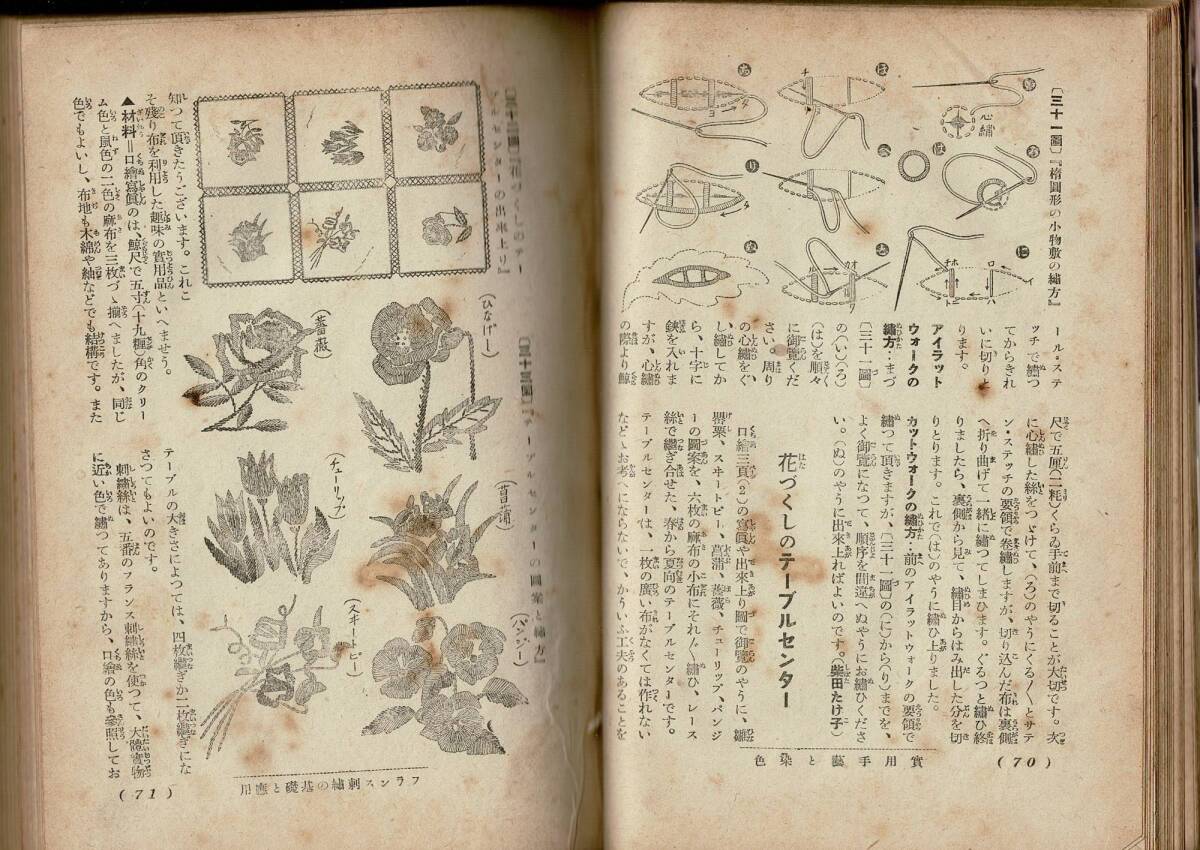 〔三十一圖〕『楕圓形の小物敷の繡方』
心繡
ール・ステ
ッチで繡つ
てからきれ
いに切りと
ります。
アイラット
ウォークの
繡方‥まづ
〔三十一圖〕
の(い)(ろ)
(は)を順々
に御覽くだ
さい。周り
の心繡をぐ
し繡してか
ら、十字に
鋏を入れま
すが、心繡
の際より鯨
尺で五厘(二粍)くらゐ手前まで切ることが大切です。次
に心繡した絲をつゞけて、(ろ)のやうにくる〳〵とサテ
ン・ステッチの要領で卷繡しますが、切り込んだ布は裏側
へ折り曲げて一緒に繡つてしまひます。ぐるつと繡ひ終
りましたら、裏側から見て、繡目からはみ出した分を切
りとります。これで(は)のやうに繡ひ上りました。
カットウォークの繡方‥前のアイラットウォークの要領で
繡つて頂きますが、〔三十一圖〕の(に)から(り)までを、
よく御覽になつて、順序を間違へぬやうにお繡ひくださ
い。(ぬ)のやうに出來上ればよいのです。(柴田たけ子)
花づくしのテーブルセンター
口繪三頁(2)の寫眞や出來上り圖で御覽のやうに、雛
罌粟、スヰートピー、菖蒲、薔薇、チューリップ、パンジ
ーの圖案を、六枚の麻布の小布にそれ〴〵繡ひ、レース
絲で繼ぎ合せた、春から夏向のテーブルセンターです。
テーブルセンターは、一枚の廣い布がなくては作れない
などゝお考へにならないで、かういふ工夫のあることを
實用手藝と染色
(70)
〔三十二圖〕『花づくしのテー
ブルセンターの出來上り』
知つて頂きたうございます。これこ
そ殘り布を利用した趣味の實用品といへませう。
▲材料=口繪寫眞のは、鯨尺で五寸(十九糎)角のクリー
ム色と鼠色の二色の麻布を三枚づゝ揃へましたが、同じ
色でもよいし、布地も木綿や紬などでも結構です。また
〔三十三圖〕『テーブルセンターの圖案と繡方』
(ひなげし)
(薔薇)
(菖蒲)
(チューリップ)
(パンジー)
(スヰートピー)
テーブルの大きさによつては、四枚繼ぎか二枚繼ぎにな
さつてもよいのです。
刺繡絲は、五番のフランス刺繡絲を使つて、大體實物
に近い色で繡つてありますから、口繪の色も參照してお
フランス刺繡の基礎と應用
(71)